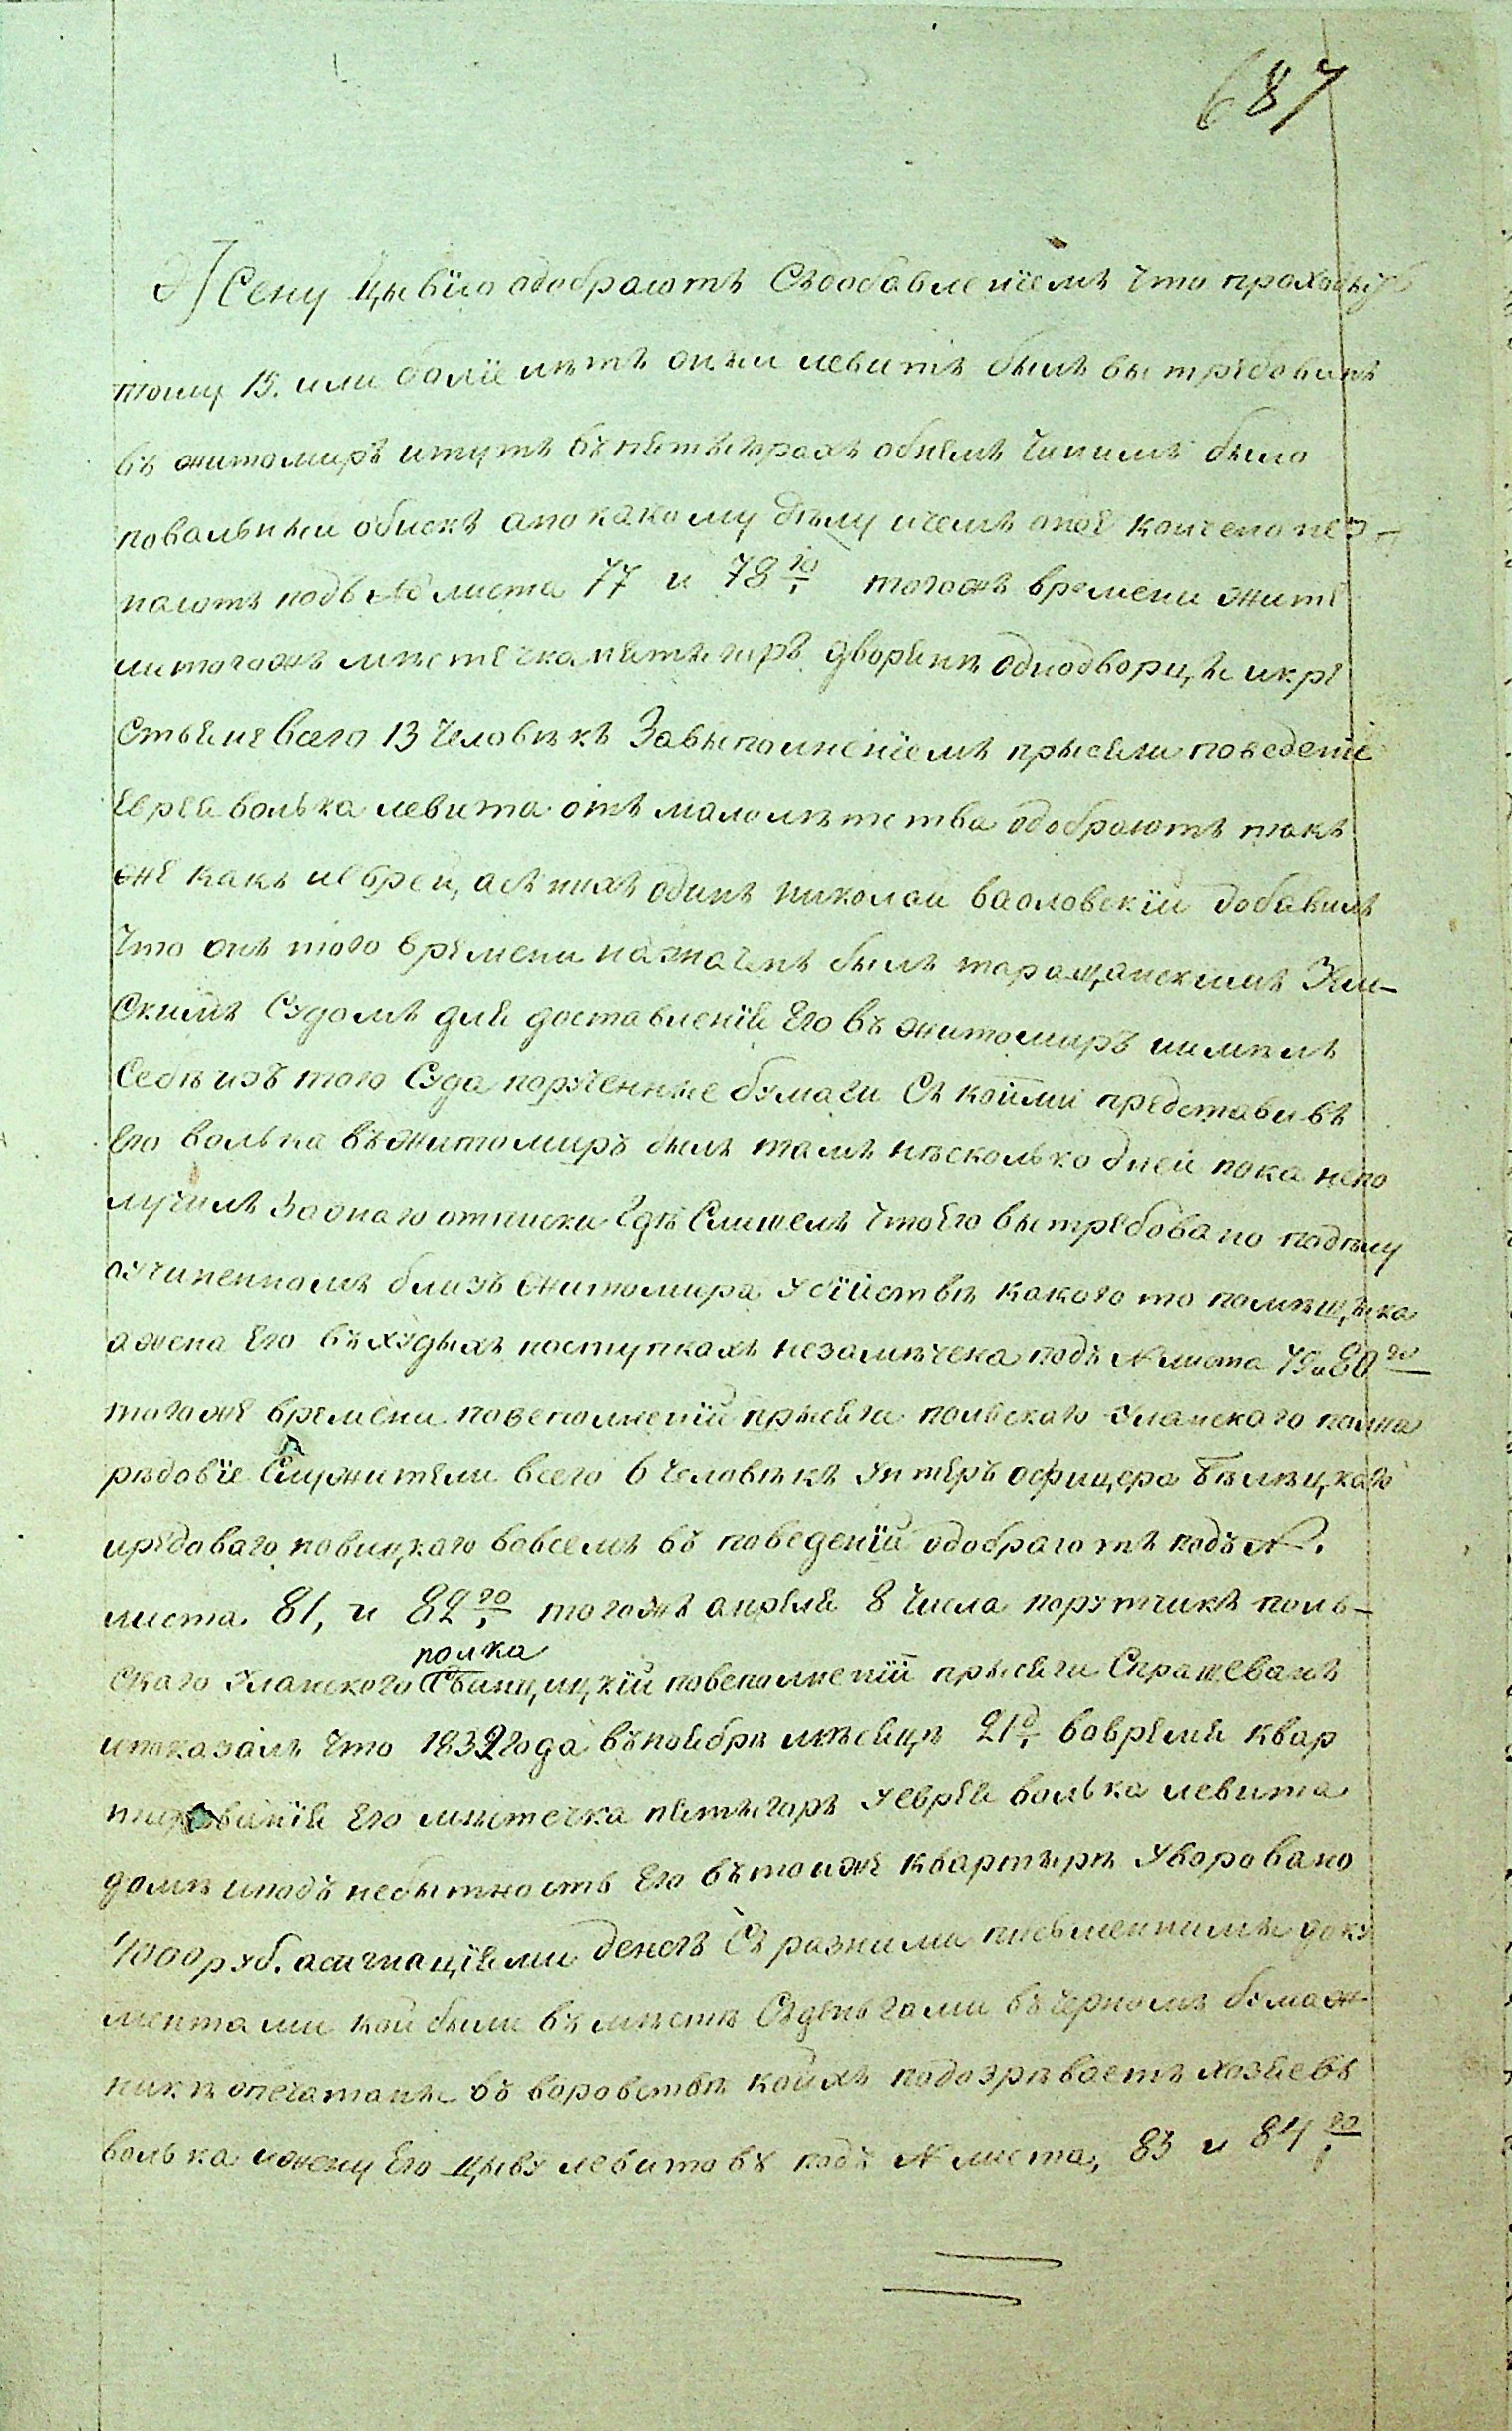 687
Жену Цывію одобраютъ Съдобавленіемъ Что проходыть
тому 15. или боліе лѣтъ оный левитъ былъ вытребованъ
въ житомиръ итутъ Бъпятыграхъ обнемъ Чинимъ было
повальный обискъ апокакому дѣлу ичемъ оное кончено нез-
наютъ подъ № листа 77 и 78го, тогожъ времени жите
литогожъ мѣстечка пятыгоръ дворяне Однодворцы икре
Стьяне всего 13 Человѣкъ Завыполненіемъ присяги поведеніе
Еврея волька левита отъ малолѣтства одобраютъ такъ
же какъ иЕбреи, асъ нихъ одинъ николай ваоловскій добавилъ
Что онъ того времени назначенъ былъ таращанскимъ Зем-
Скимъ Судомъ для доставленія Его въ житомиръ иимѣлъ
Себѣ изъ того Суда порученные бумаги Съ коими представивъ
Его волька въжитомиръ былъ тамъ нѣсколько дней пока непо
лучилъ Заонаго отписки Гдѣ Слишелъ ЧтоЕго вытребовано подѣлу
оучиненномъ близъ житомира убійствѣ какого то помѣщыка
ажена Его въхудыхъ поступкахъ незамѣчена подъ № листа 79и80го
тогоже времени повсполненіи присяги польскаго Уланского полка
рядовіе Служители всего 6 человѣкъ Унтеръ офицера Бѣлецкаго
ирядоваго новицкаго вовсемъ въ поведеніи одобраютъ подъ №.
листа 81, и 82го, тогожъ апреля 8 Числа порутчикъ поль-
полка
скаго Уланского повсполненіи присяги Спрашеванъ
ипоказалъ Что 1832года въноябрѣ мѣсяцѣ 21го, вовремя квар
тированія Его мѣстечка пятыгоръ уеврея волька левита
домѣ иподъ небытность Его вътойже квартырѣ Уворовано
1000 руб. асигнаціями денегъ Съ разнима письменнимы доку
ментами кои были вѣместѣ Съденьгами въ черномъ бумаж
никѣ опечатаны въ воровствѣ коихъ подозрѣваетъ хозяевъ
волька ижену Его Цыву левитовъ подъ № листа, 83 и 84го,